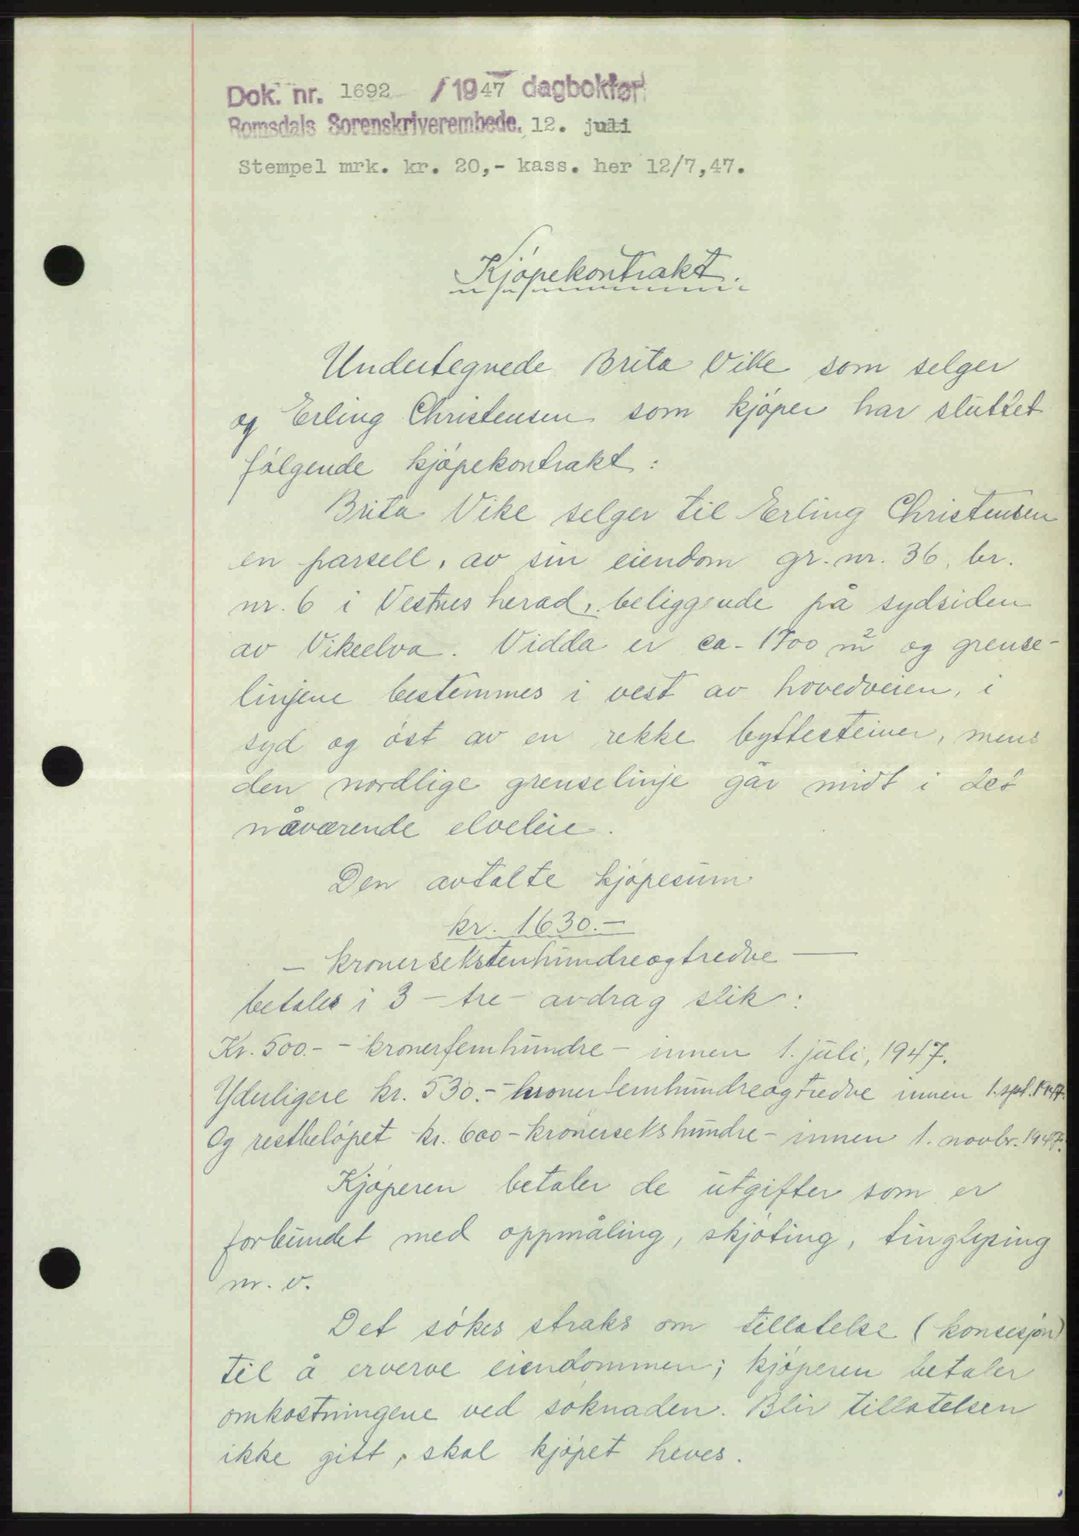 Dok. nr. 1692 /1947 dagbokført
Romsdals Sorenskriverembede. 12. juli
Stempel mrk. kr. 20,- kass. her 12/7,47.
Kjøpekontrakt.
Undertegnede Brita Vike som selger
og Erling Christensen som kjøper har sluttet
følgende kjøpekontrakt:
Brita Vike selger til Erling Christensen
en parsell, av sin eiendom gr. nr. 36, br.
nr. 6 i Vestnes herad, beliggende på sydsiden
av Vikeelva. Vidda er ca. 1700 m² og grense-
linjene bestemmes i vest av hovedveien, i
syd og øst av en rekke byttesteiner, mens
den nordlige grenselinje går midt i det
nåværende elveleie.
Den avtalte kjøpesum
kr. 1630.-
- kronersekstenhundreogtredve -
betales i 3 - tre - avdrag slik:
Kr. 500.- - kronerfemhundre - innen 1. juli, 1947.
Yderligere kr. 530.- - kronerfemhundreogtredve innen 1. spt. 1947.
Og restbeløpet kr. 600 - kronersekshundre - innen 1. novbr. 1947.
Kjøperen betaler de utgifter som er
forbundet med oppmåling, skjøting, tinglysing
m. v.
Det søkes straks om tillatelse (konsesjon)
til å erverve eiendommen; kjøperen betaler
omkostningene ved søknaden. Blir tillatelsen
ikke gitt, skal kjøpet heves.